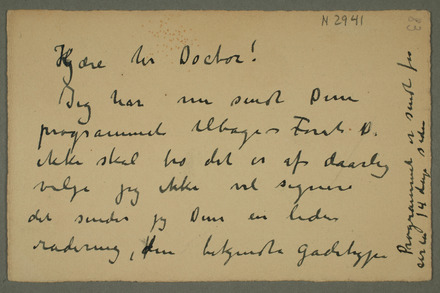 N 2941
Kjære hr Doctor!
Jeg har nu sendt Dem
programmet tilbage. Forat D.
ikke skal tro det er af daarlig
vilje jeg ikke vil signere
det sender jeg Dem en liden
radering, den bekjendte gadetype
Programmet er sendt for
circa 14 dage siden